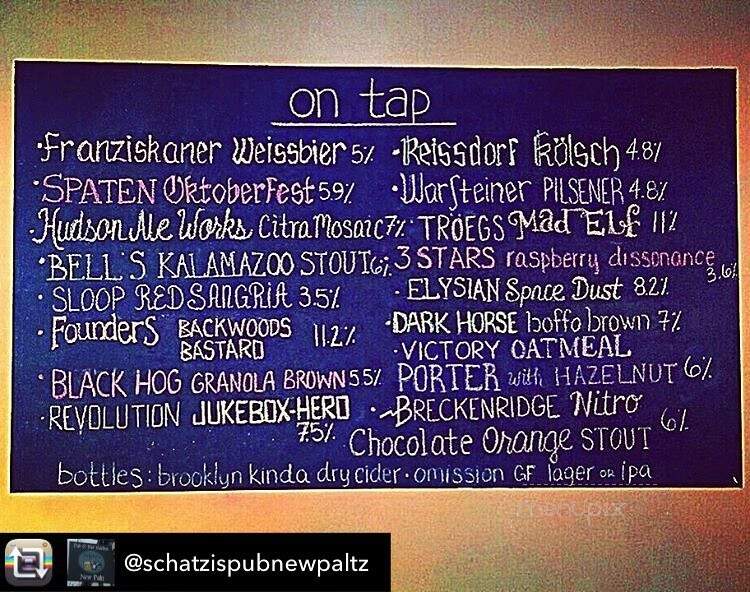 on tap
·Franziskaner Weissbier 5%
·SPATEN Oktoberfest 5.9%
·Hudson Ale Works Citra Mosaic 7%
·BELL'S KALAMAZOO STOUT 6%
·SLOOP RED SANGRIA 3.5%
·Founders BACKWOODS
BASTARD 11.2%
·BLACK HOG GRANOLA BROWN 5.5%
·REVOLUTION JUKEBOX-HERO
7.5%
·Reissdorf Kölsch 4.8%
·Warsteiner PILSENER 4.8%
·TROEGS Mad ELF 11%
·3 STARS raspberry dissonance
3.6%
·ELYSIAN Space Dust 8.2%
·DARK HORSE boffo brown 7%
·VICTORY OATMEAL
PORTER with HAZELNUT 6%
·BRECKENRIDGE Nitro
Chocolate Orange STOUT 6%
bottles: brooklyn kinda dry cider · omission GF lager or ipa
@schatzispubnewpaltz